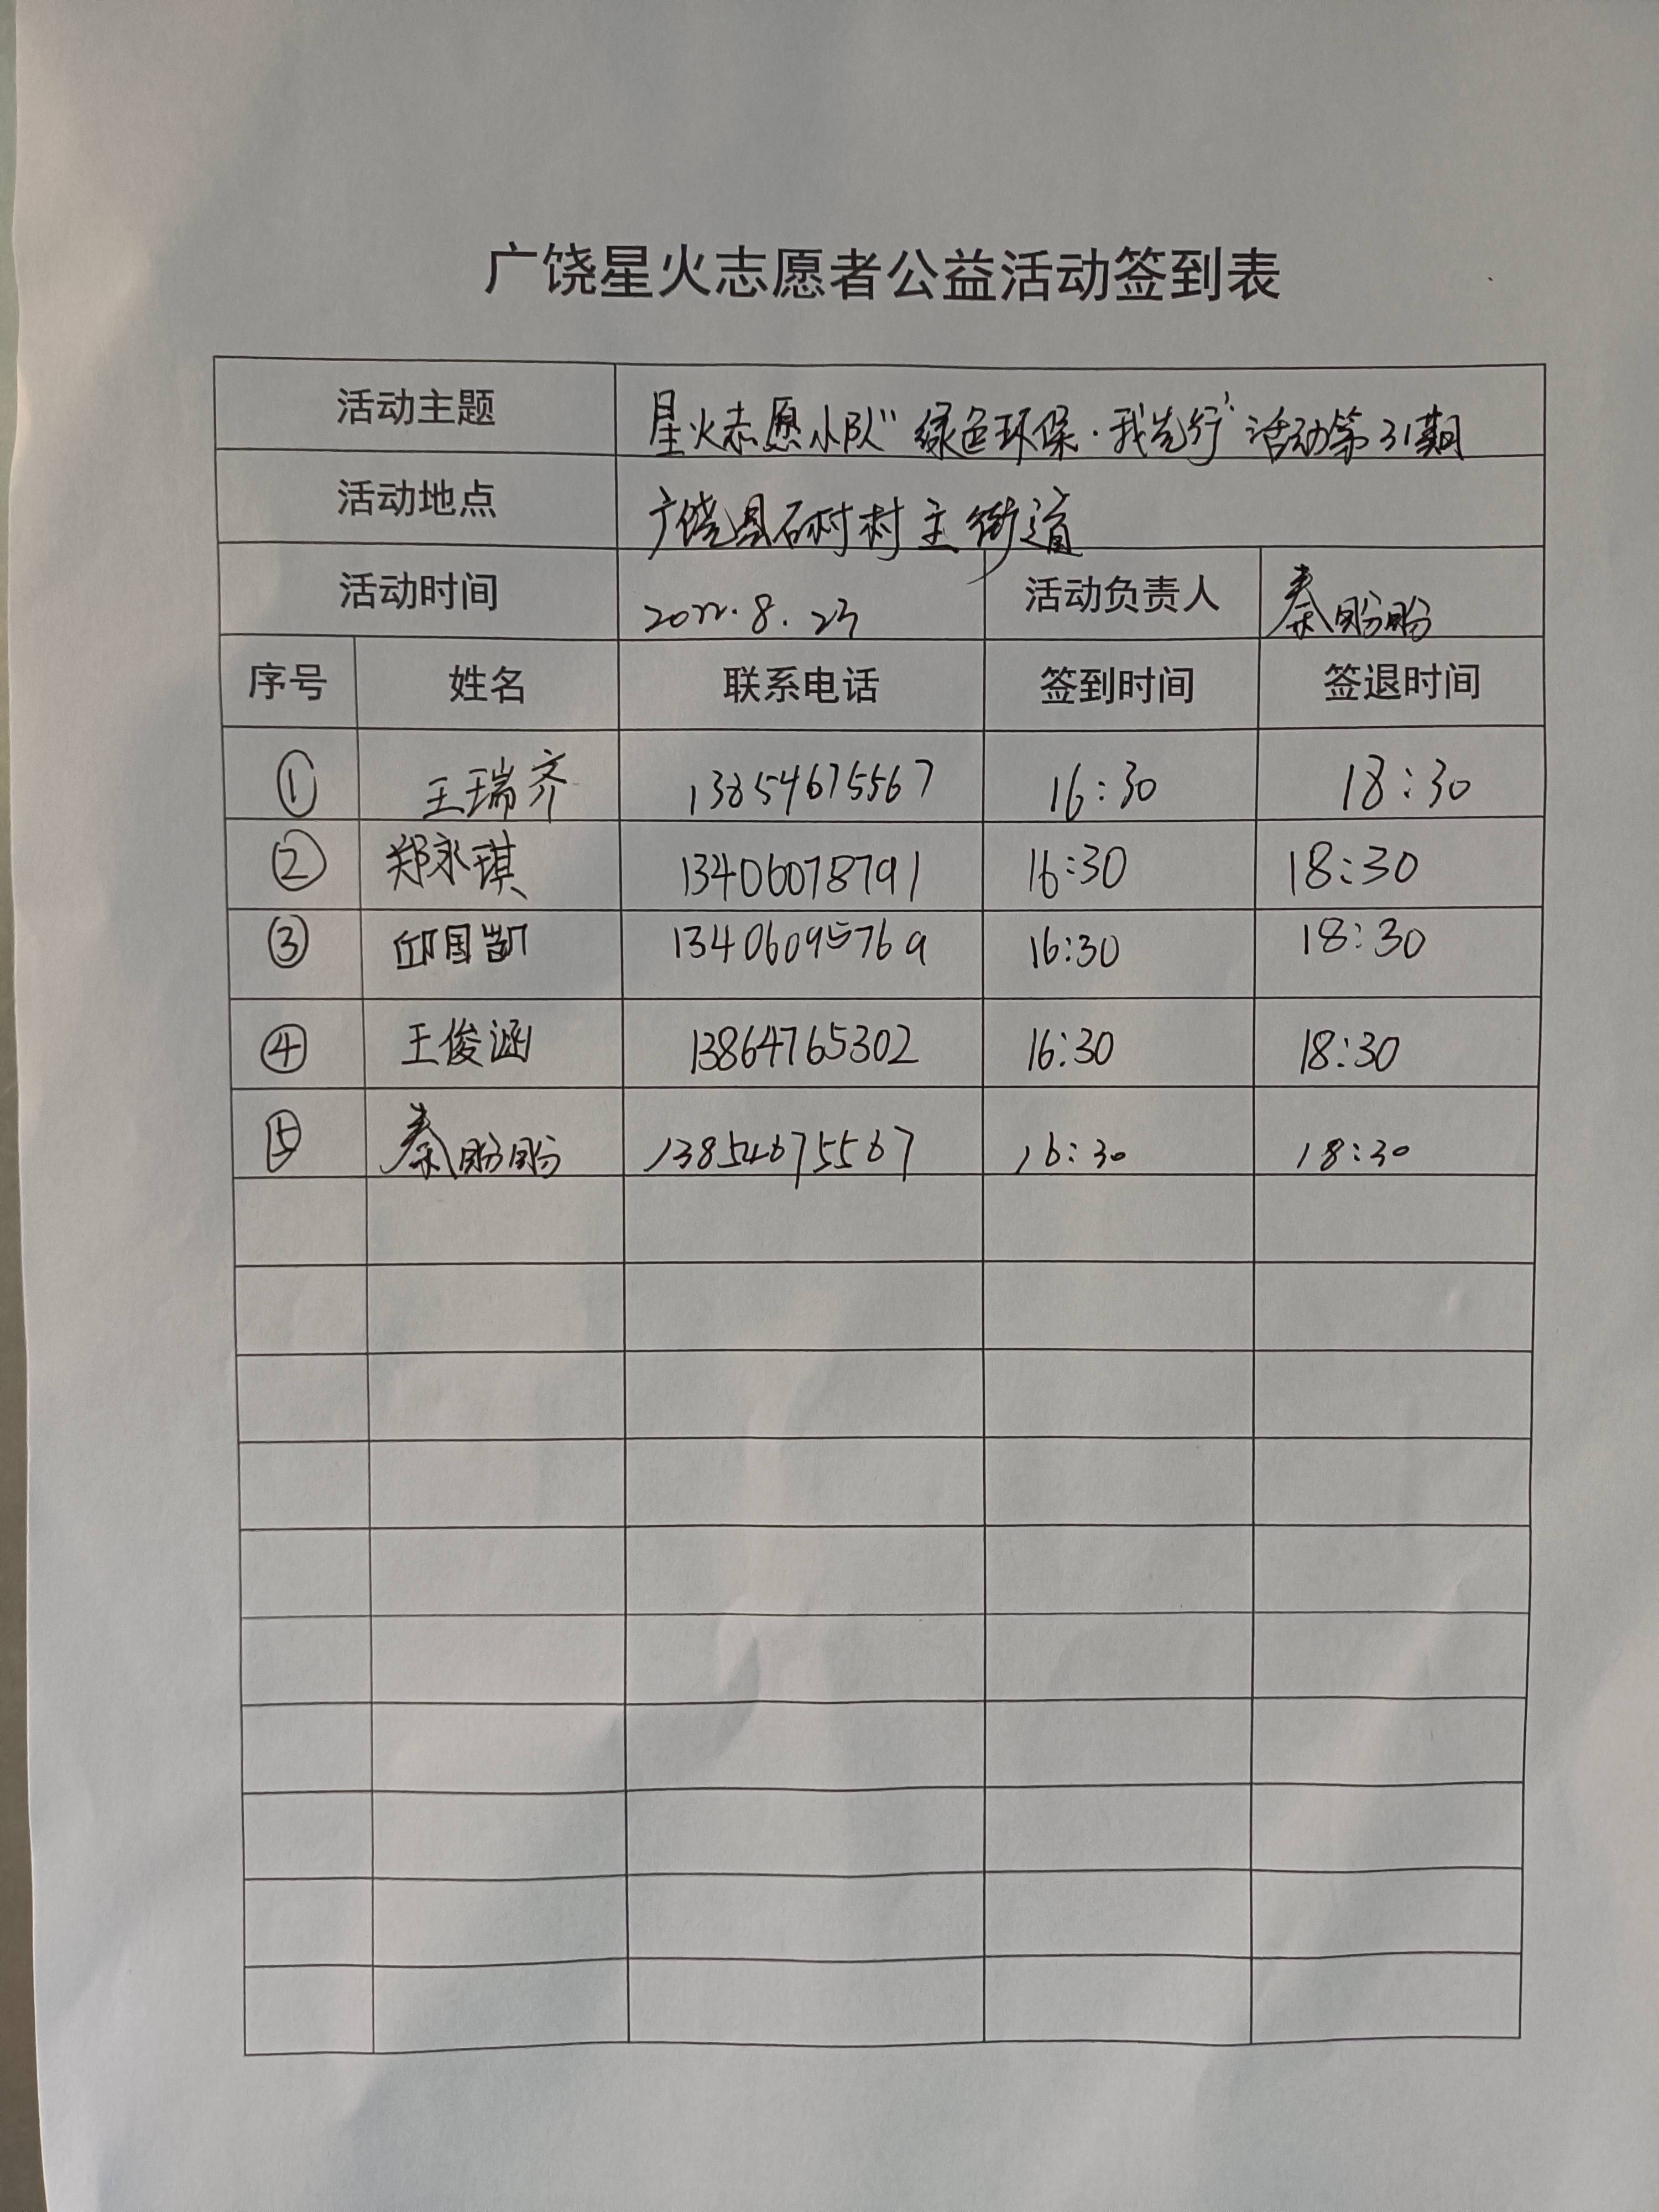 广饶星火志愿者公益活动签到表
活动主题 星火志愿小队"绿色环保·我先行"活动第31期
活动地点 广饶县石村村主街道
活动时间 2022.8.23 活动负责人 秦盼盼
序号 姓名 联系电话 签到时间 签退时间
① 王瑞齐 13854675567 16:30 18:30
② 郑永琪 13406078791 16:30 18:30
③ 邱国凯 13406095769 16:30 18:30
④ 王俊涵 13864765302 16:30 18:30
⑤ 秦盼盼 13854675567 16:30 18:30